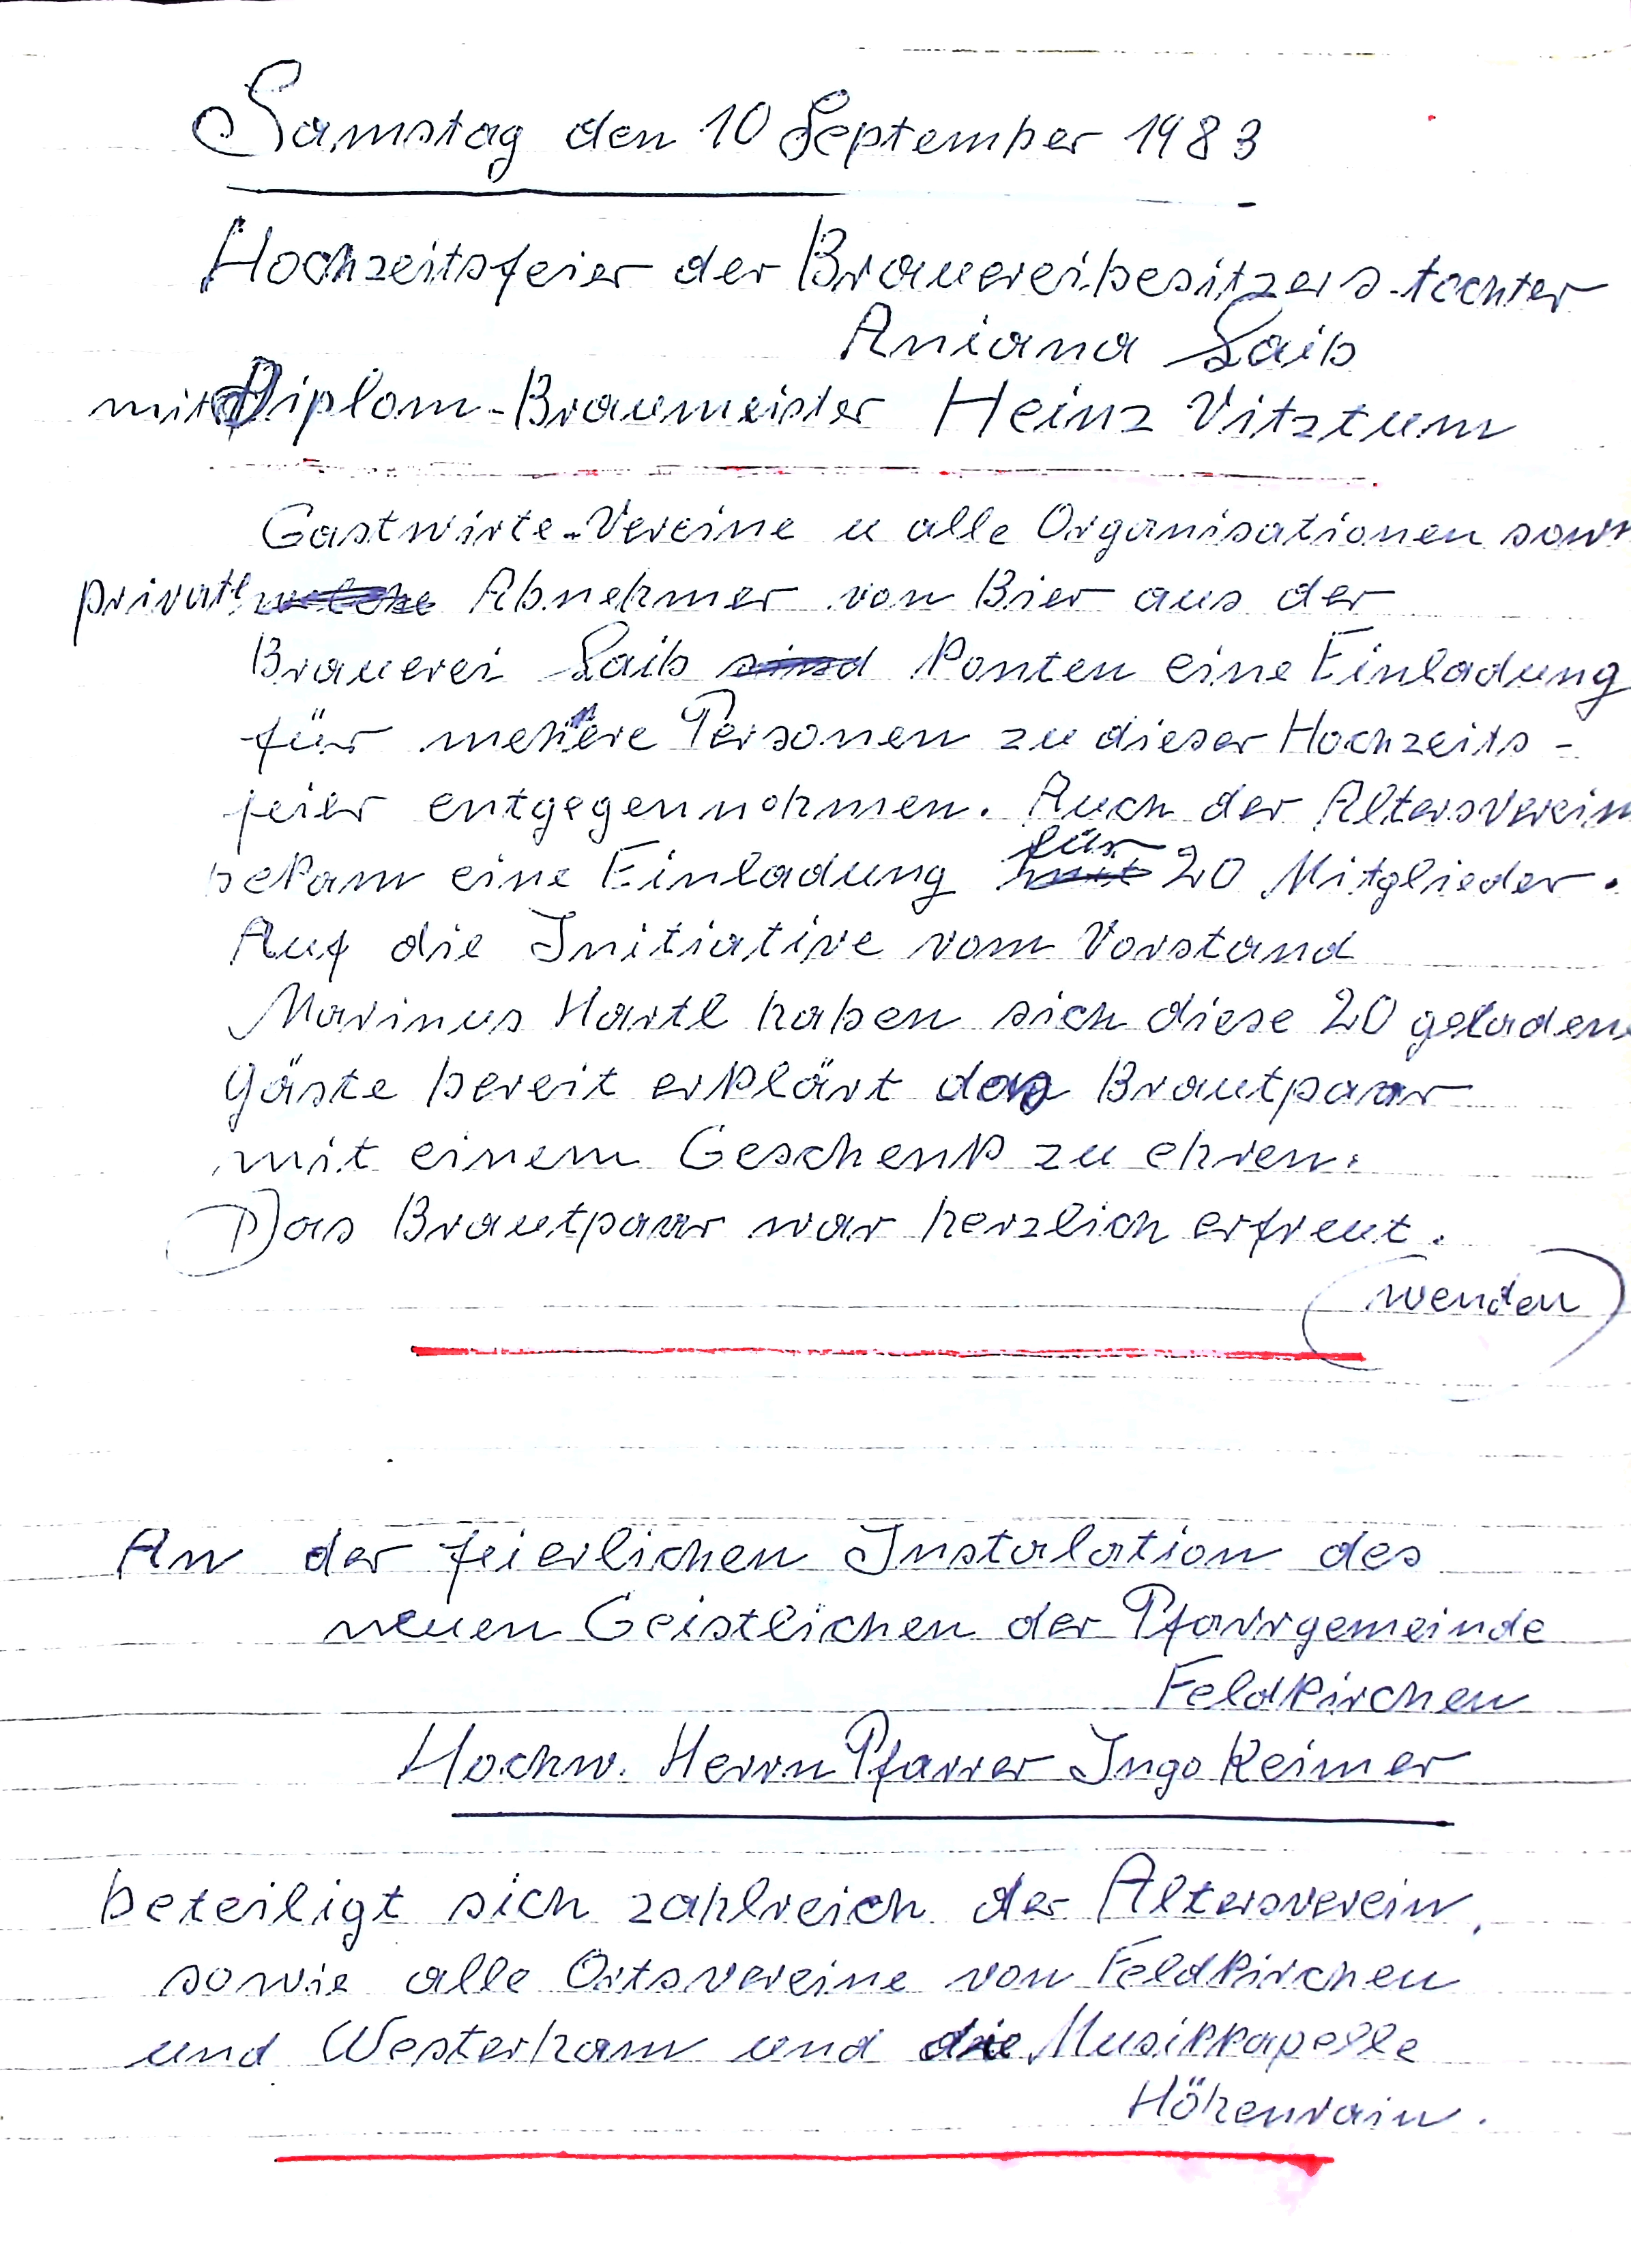 Samstag den 10 September 1983
Hochzeitsfeier der Brauereibesitzers-tochter
Aniana Saib
mit Diplom-Braumeister Heinz Vitztum
Gastwirte-Vereine u alle Organisationen sow
privatl. Abnehmer von Bier aus der
Brauerei Saib konten eine Einladung
für mehrere Personen zu dieser Hochzeits-
feier entgegennehmen. Auch der Altersverein
bekam eine Einladung für 20 Mitglieder.
Auf die Initiative vom Vorstand
Marinus Hartl haben sich diese 20 geladene
Gäste bereit erklärt das Brautpaar
mit einem Geschenk zu ehren.
Das Brautpaar war herzlich erfreut.
(wenden)
An der feierlichen Instalation des
neuen Geistlichen der Pfarrgemeinde
Feldkirchen
Hochw. Herrn Pfarrer Ingo Reimer
beteiligt sich zahlreich der Altersverein,
sowie alle Ortsvereine von Feldkirchen
und Westerham und die Musikkapelle
Höhenrain.